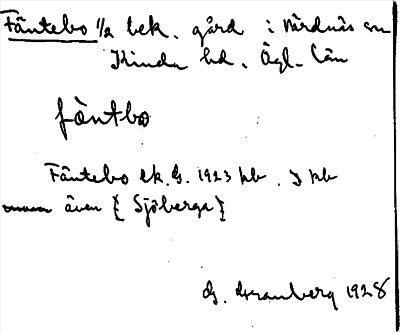 Fäntebo 1/2 bek. gård i Vårdnäs sn
Kinda hd. Ögl. län
fäntbo
Fäntebo ek. G. 1923 kb. I kb
även { Sjöberga }
G. Franberg 1928